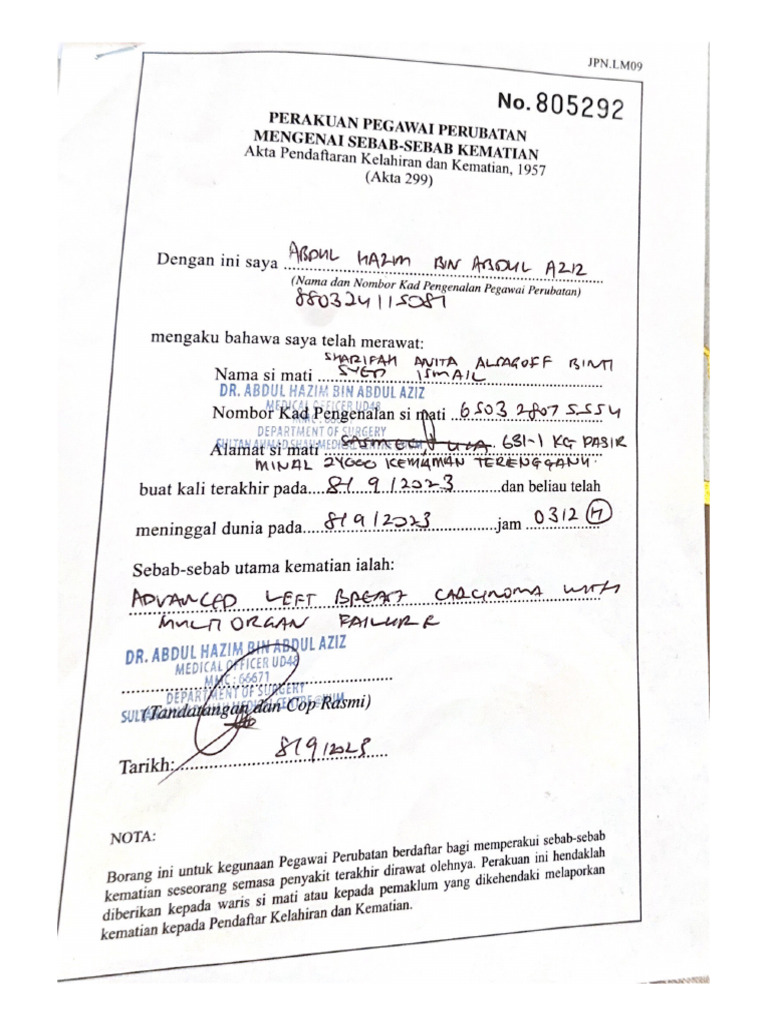 JPN.LM09
No. 805292
PERAKUAN PEGAWAI PERUBATAN
MENGENAI SEBAB-SEBAB KEMATIAN
Akta Pendaftaran Kelahiran dan Kematian, 1957
(Akta 299)
Dengan ini saya ABDUL HAZIM BIN ABDUL AZIZ
(Nama dan Nombor Kad Pengenalan Pegawai Perubatan)
880324115081
mengaku bahawa saya telah merawat:
SHARIFAH ANITA ALSAGOFF BINTI
Nama si mati SYED ISMAIL
DR. ABDUL HAZIM BIN ABDUL AZIZ
MEDICAL OFFICER UD48
Nombor Kad Pengenalan si mati 650328075554
MMC: 66671
DEPARTMENT OF SURGERY
SULTAN AHMAD SHAH MEDICAL CENTRE @IIUM
Alamat si mati 681-1 KG PASIR
MINAL 24000 KEMAMAN TERENGGANU.
buat kali terakhir pada 8/9/2023 dan beliau telah
meninggal dunia pada 8/9/2023 jam 0312 H
Sebab-sebab utama kematian ialah:
ADVANCED LEFT BREAST CARCINOMA WITH
MULTIORGAN FAILURE
DR. ABDUL HAZIM BIN ABDUL AZIZ
MEDICAL OFFICER UD48
MMC: 66671
DEPARTMENT OF SURGERY
SULTAN AHMAD SHAH MEDICAL CENTRE @IIUM
(Tandatangan dan Cop Rasmi)
Tarikh: 8/9/2023
NOTA:
Borang ini untuk kegunaan Pegawai Perubatan berdaftar bagi memperakui sebab-sebab
kematian seseorang semasa penyakit terakhir dirawat olehnya. Perakuan ini hendaklah
diberikan kepada waris si mati atau kepada pemaklum yang dikehendaki melaporkan
kematian kepada Pendaftar Kelahiran dan Kematian.